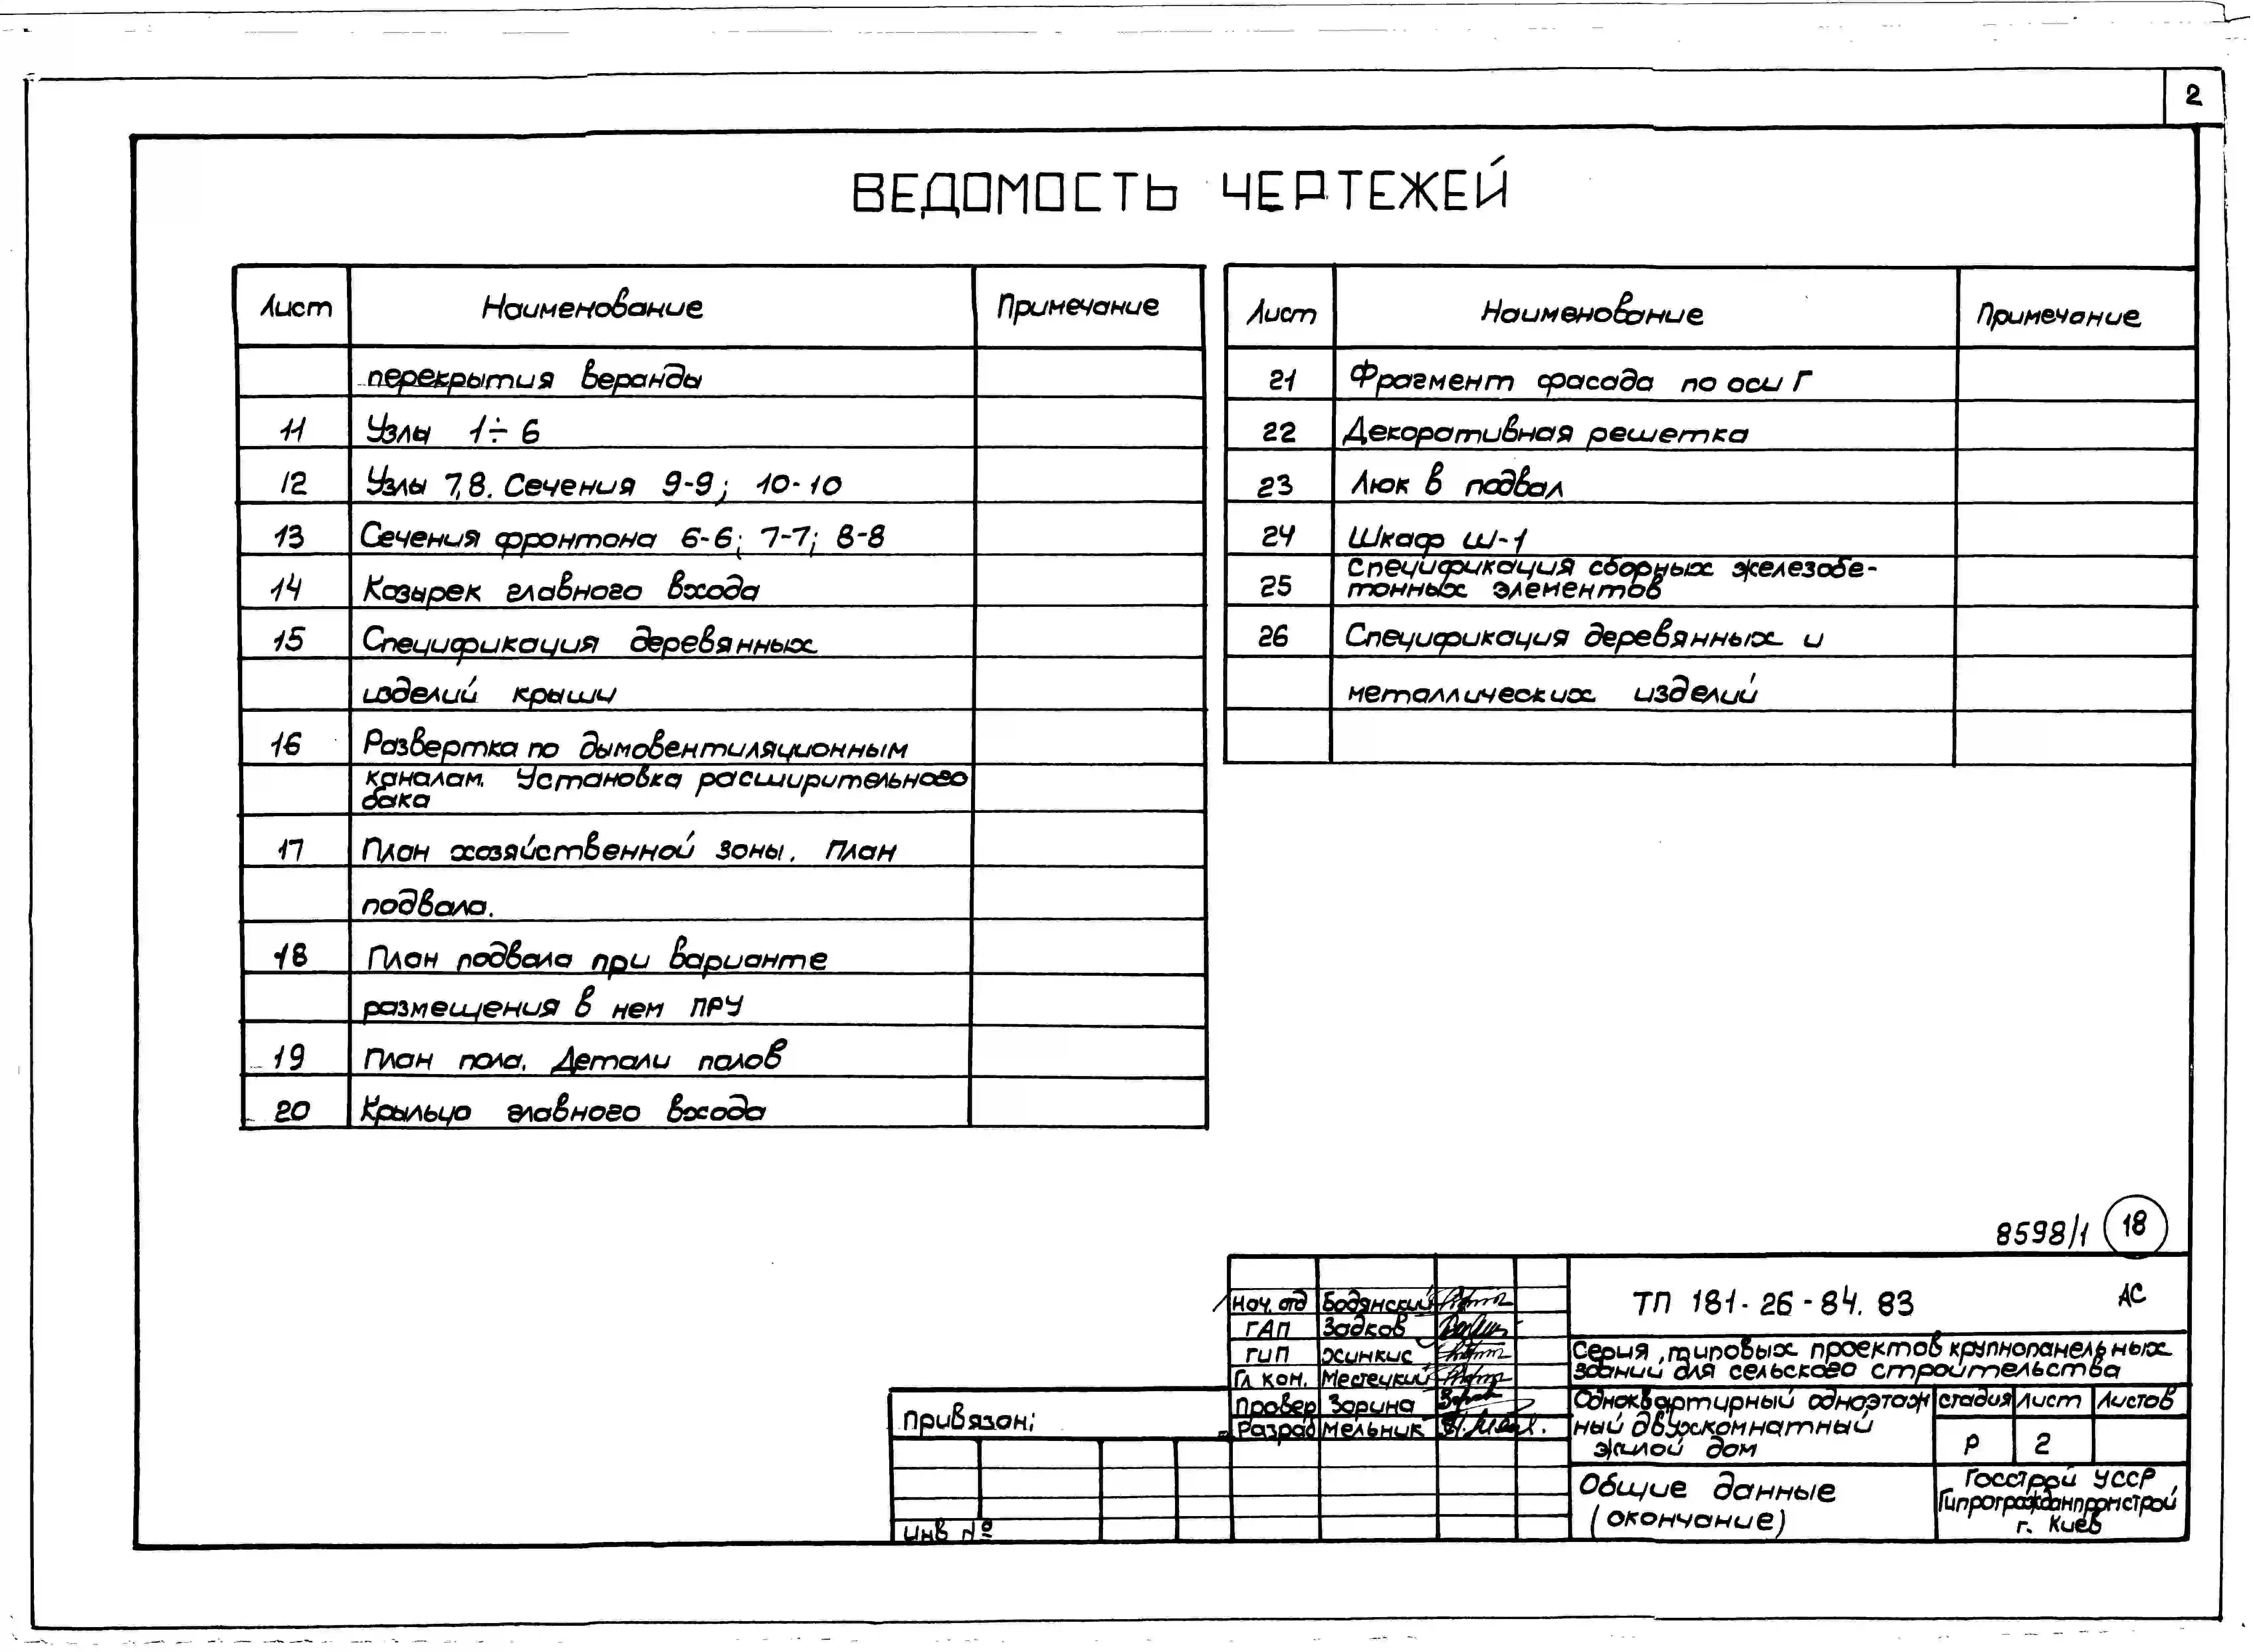 2
ВЕДОМОСТЬ ЧЕРТЕЖЕЙ
Лист Наименование Примечание
перекрытия веранды
11 Узлы 1÷6
12 Узлы 7,8. Сечения 9-9; 10-10
13 Сечения фронтона 6-6; 7-7; 8-8
14 Козырек главного входа
15 Спецификация деревянных
изделий крыши
16 Развертка по дымовентиляционным
каналам. Установка расширительного
бака
17 План хозяйственной зоны. План
подвала.
18 План подвала при варианте
размещения в нем ПРУ
19 План пола. Детали полов
20 Крыльцо главного входа
Лист Наименование Примечание
21 Фрагмент фасада по оси Г
22 Декоративная решетка
23 Люк в подвал
24 Шкаф Ш-1
Спецификация сборных железобе-
25 тонных элементов
26 Спецификация деревянных и
металлических изделий
8598/1 18
Нач. отд Бодянский
ГАП Задков
ГИП Хинкис
Гл кон. Местецкий
Провер Зорина
Разраб Мельник
ТП 181-26-84.83 АС
Серия типовых проектов крупнопанельных
зданий для сельского строительства
Одноквартирный одноэтаж
ный двухкомнатный
жилой дом
стадия Лист Листов
Р 2
Общие данные
(окончание)
Госстрой УССР
Гипрогражданпромстрой
г. Киев
Привязан;
Инв №